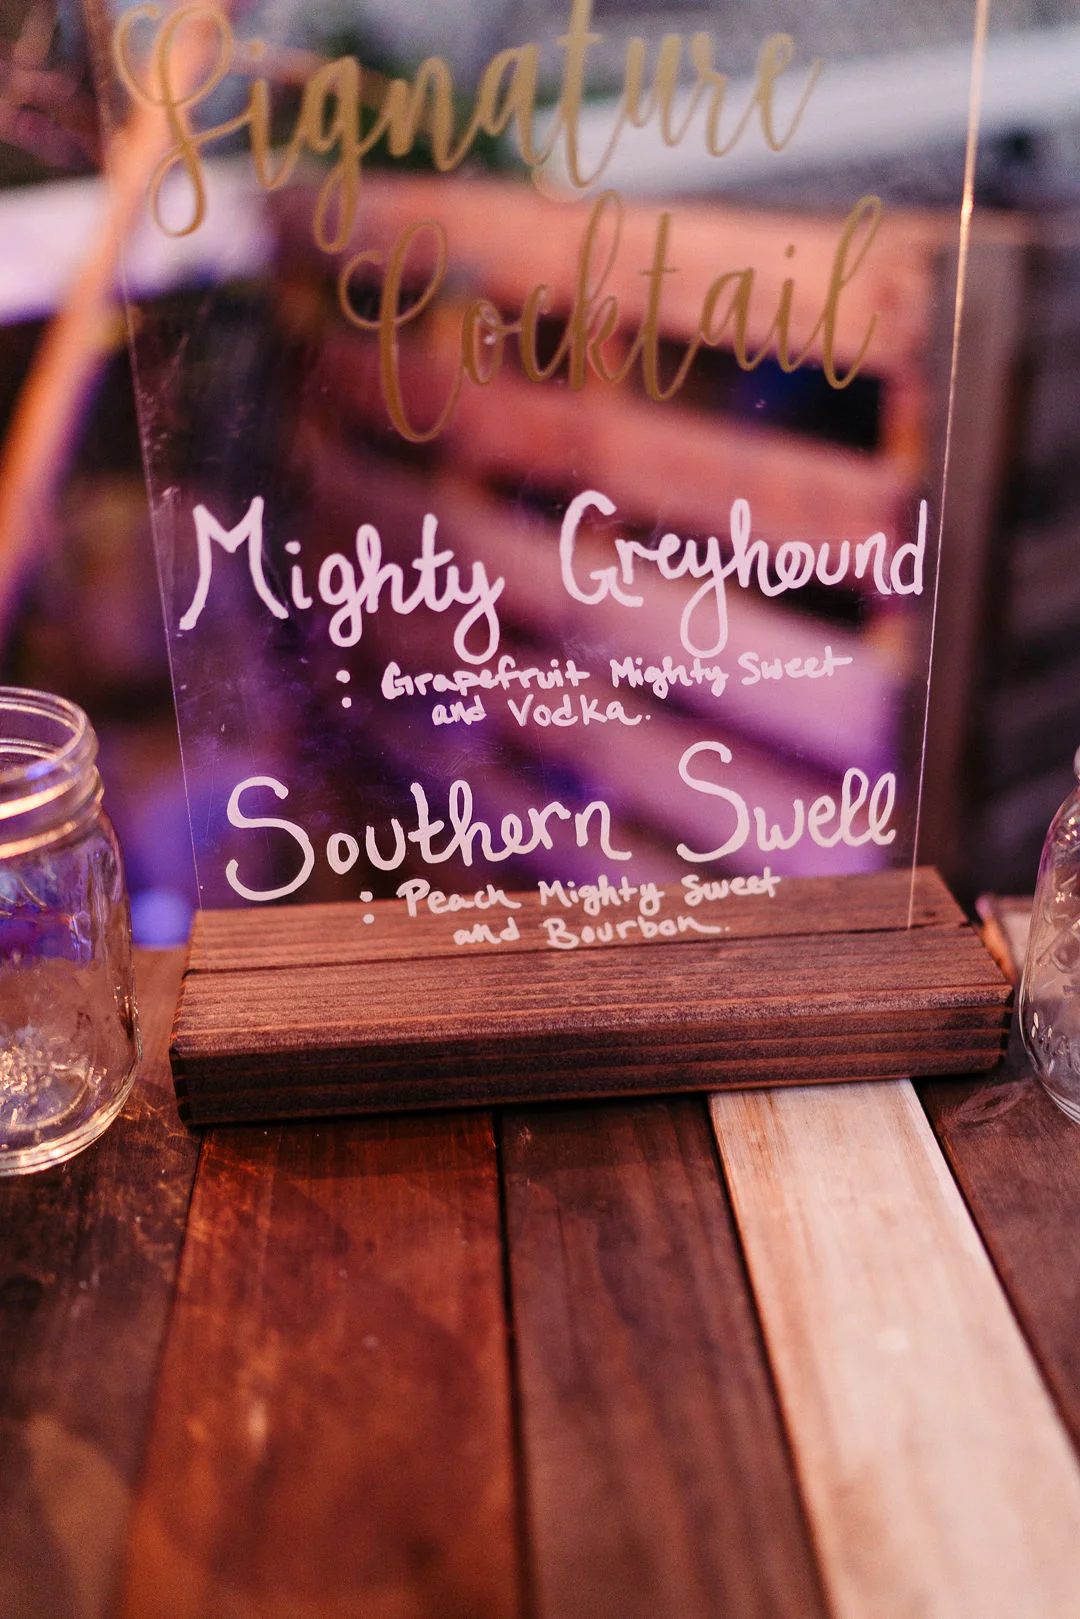 Signature
Cocktail
Mighty Greyhound
: Grapefruit Mighty Sweet
and Vodka.
Southern Swell
: Peach Mighty Sweet
and Bourbon.